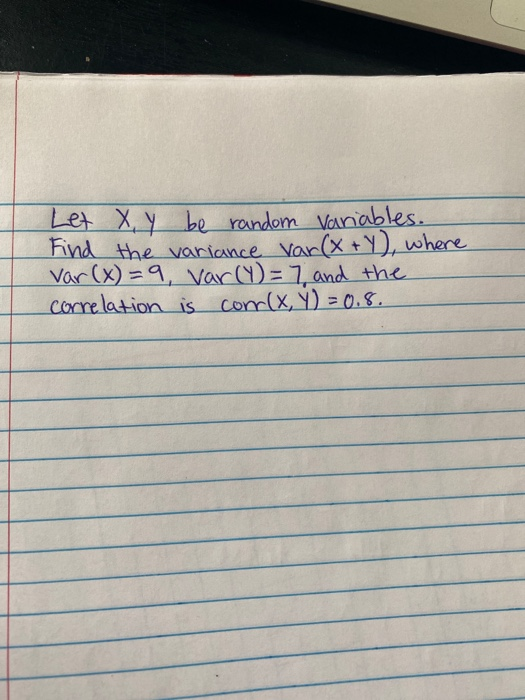 Let X, Y be random variables.
Find the variance var(X + Y), where
Var(X) = 9, Var(Y) = 7, and the
correlation is corr(X, Y) = 0.8.